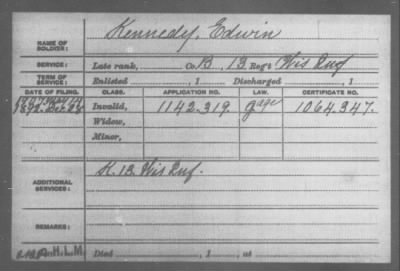 NAME OF SOLDIER: Kennedy, Edwin
SERVICE: Late rank, Co. B, 13 Reg't Wis Inf
TERM OF SERVICE: Enlisted , 1 Discharged , 1
DATE OF FILING. CLASS. APPLICATION NO. LAW. CERTIFICATE NO.
Invalid, 1142.319. 1064.347.
Widow,
Minor,
ADDITIONAL SERVICES: K. 13. Wis Inf.
REMARKS:
H.L.M. Died , 1 , at